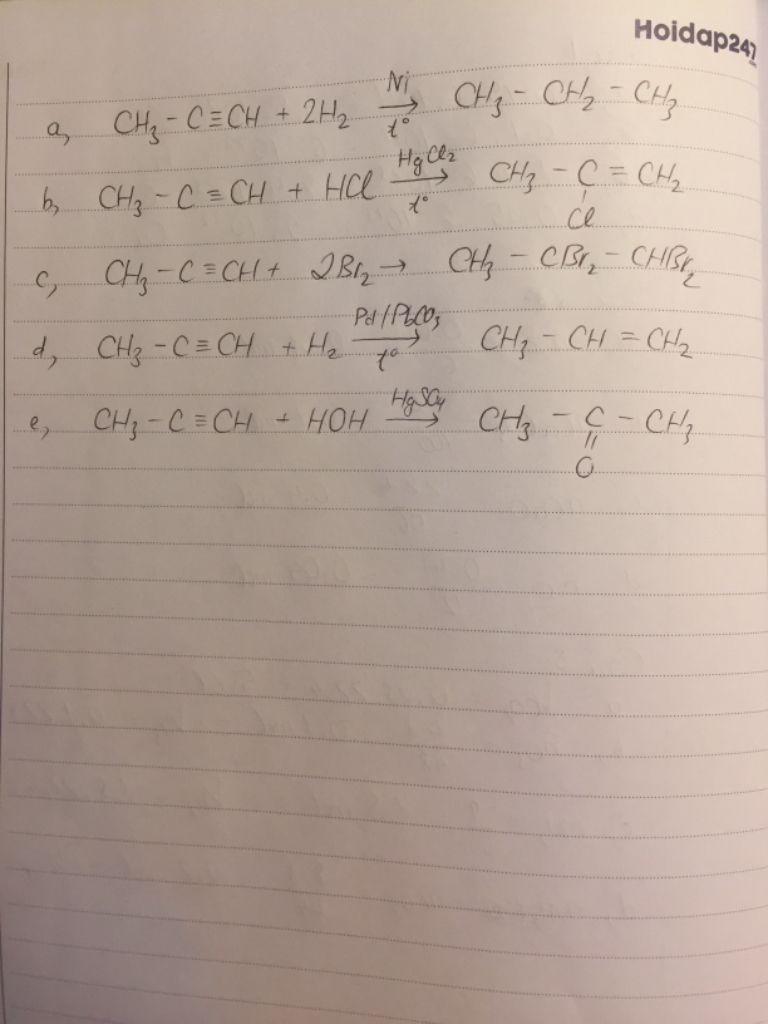 Hoidap247
a, CH₃ - C ≡ CH + 2H₂ Ni → t° CH₃ - CH₂ - CH₃
b, CH₃ - C ≡ CH + HCl HgCl₂ → t° CH₃ - C = CH₂
Cl
c, CH₃ - C ≡ CH + 2Br₂ → CH₃ - CBr₂ - CHBr₂
d, CH₃ - C ≡ CH + H₂ Pd/PbCO₃ → t° CH₃ - CH = CH₂
e, CH₃ - C ≡ CH + HOH HgSO₄ → CH₃ - C - CH₃
O